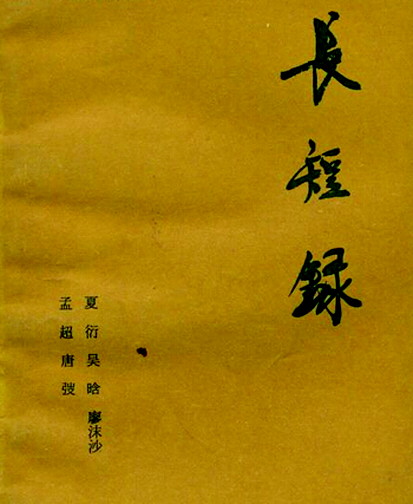 長短録
夏衍 吴晗 廖沫沙
孟超 唐弢